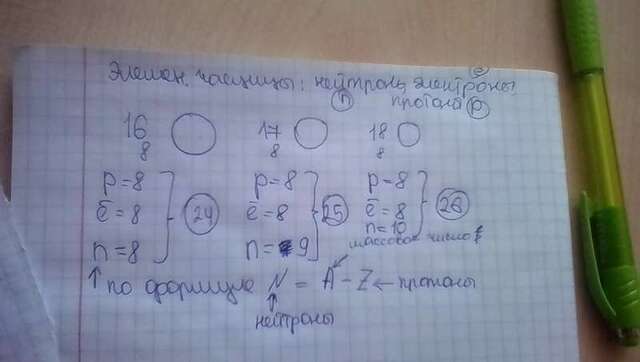 Элемен. частицы: нейтроны, электроны, e
n протоны p
16 8 O 17 8 O 18 8 O
p=8 p=8 p=8
ē=8 24 ē=8 25 ē=8 26
n=8 n=9 n=10
массовое число
по формуле N = A - Z ← протоны
нейтроны